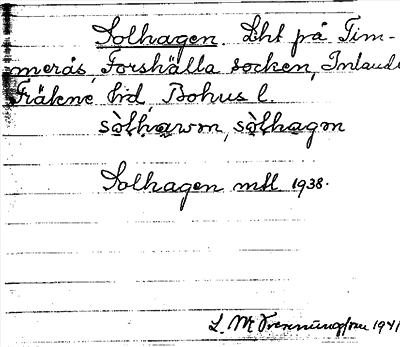 Solhagen. Lht på Tim-
merås, Forshälla socken, Inlands
Fräkne hd, Bohus l.
sòlhawm, sòlhagm
Solhagen mtl 1938.
L. M. 1941